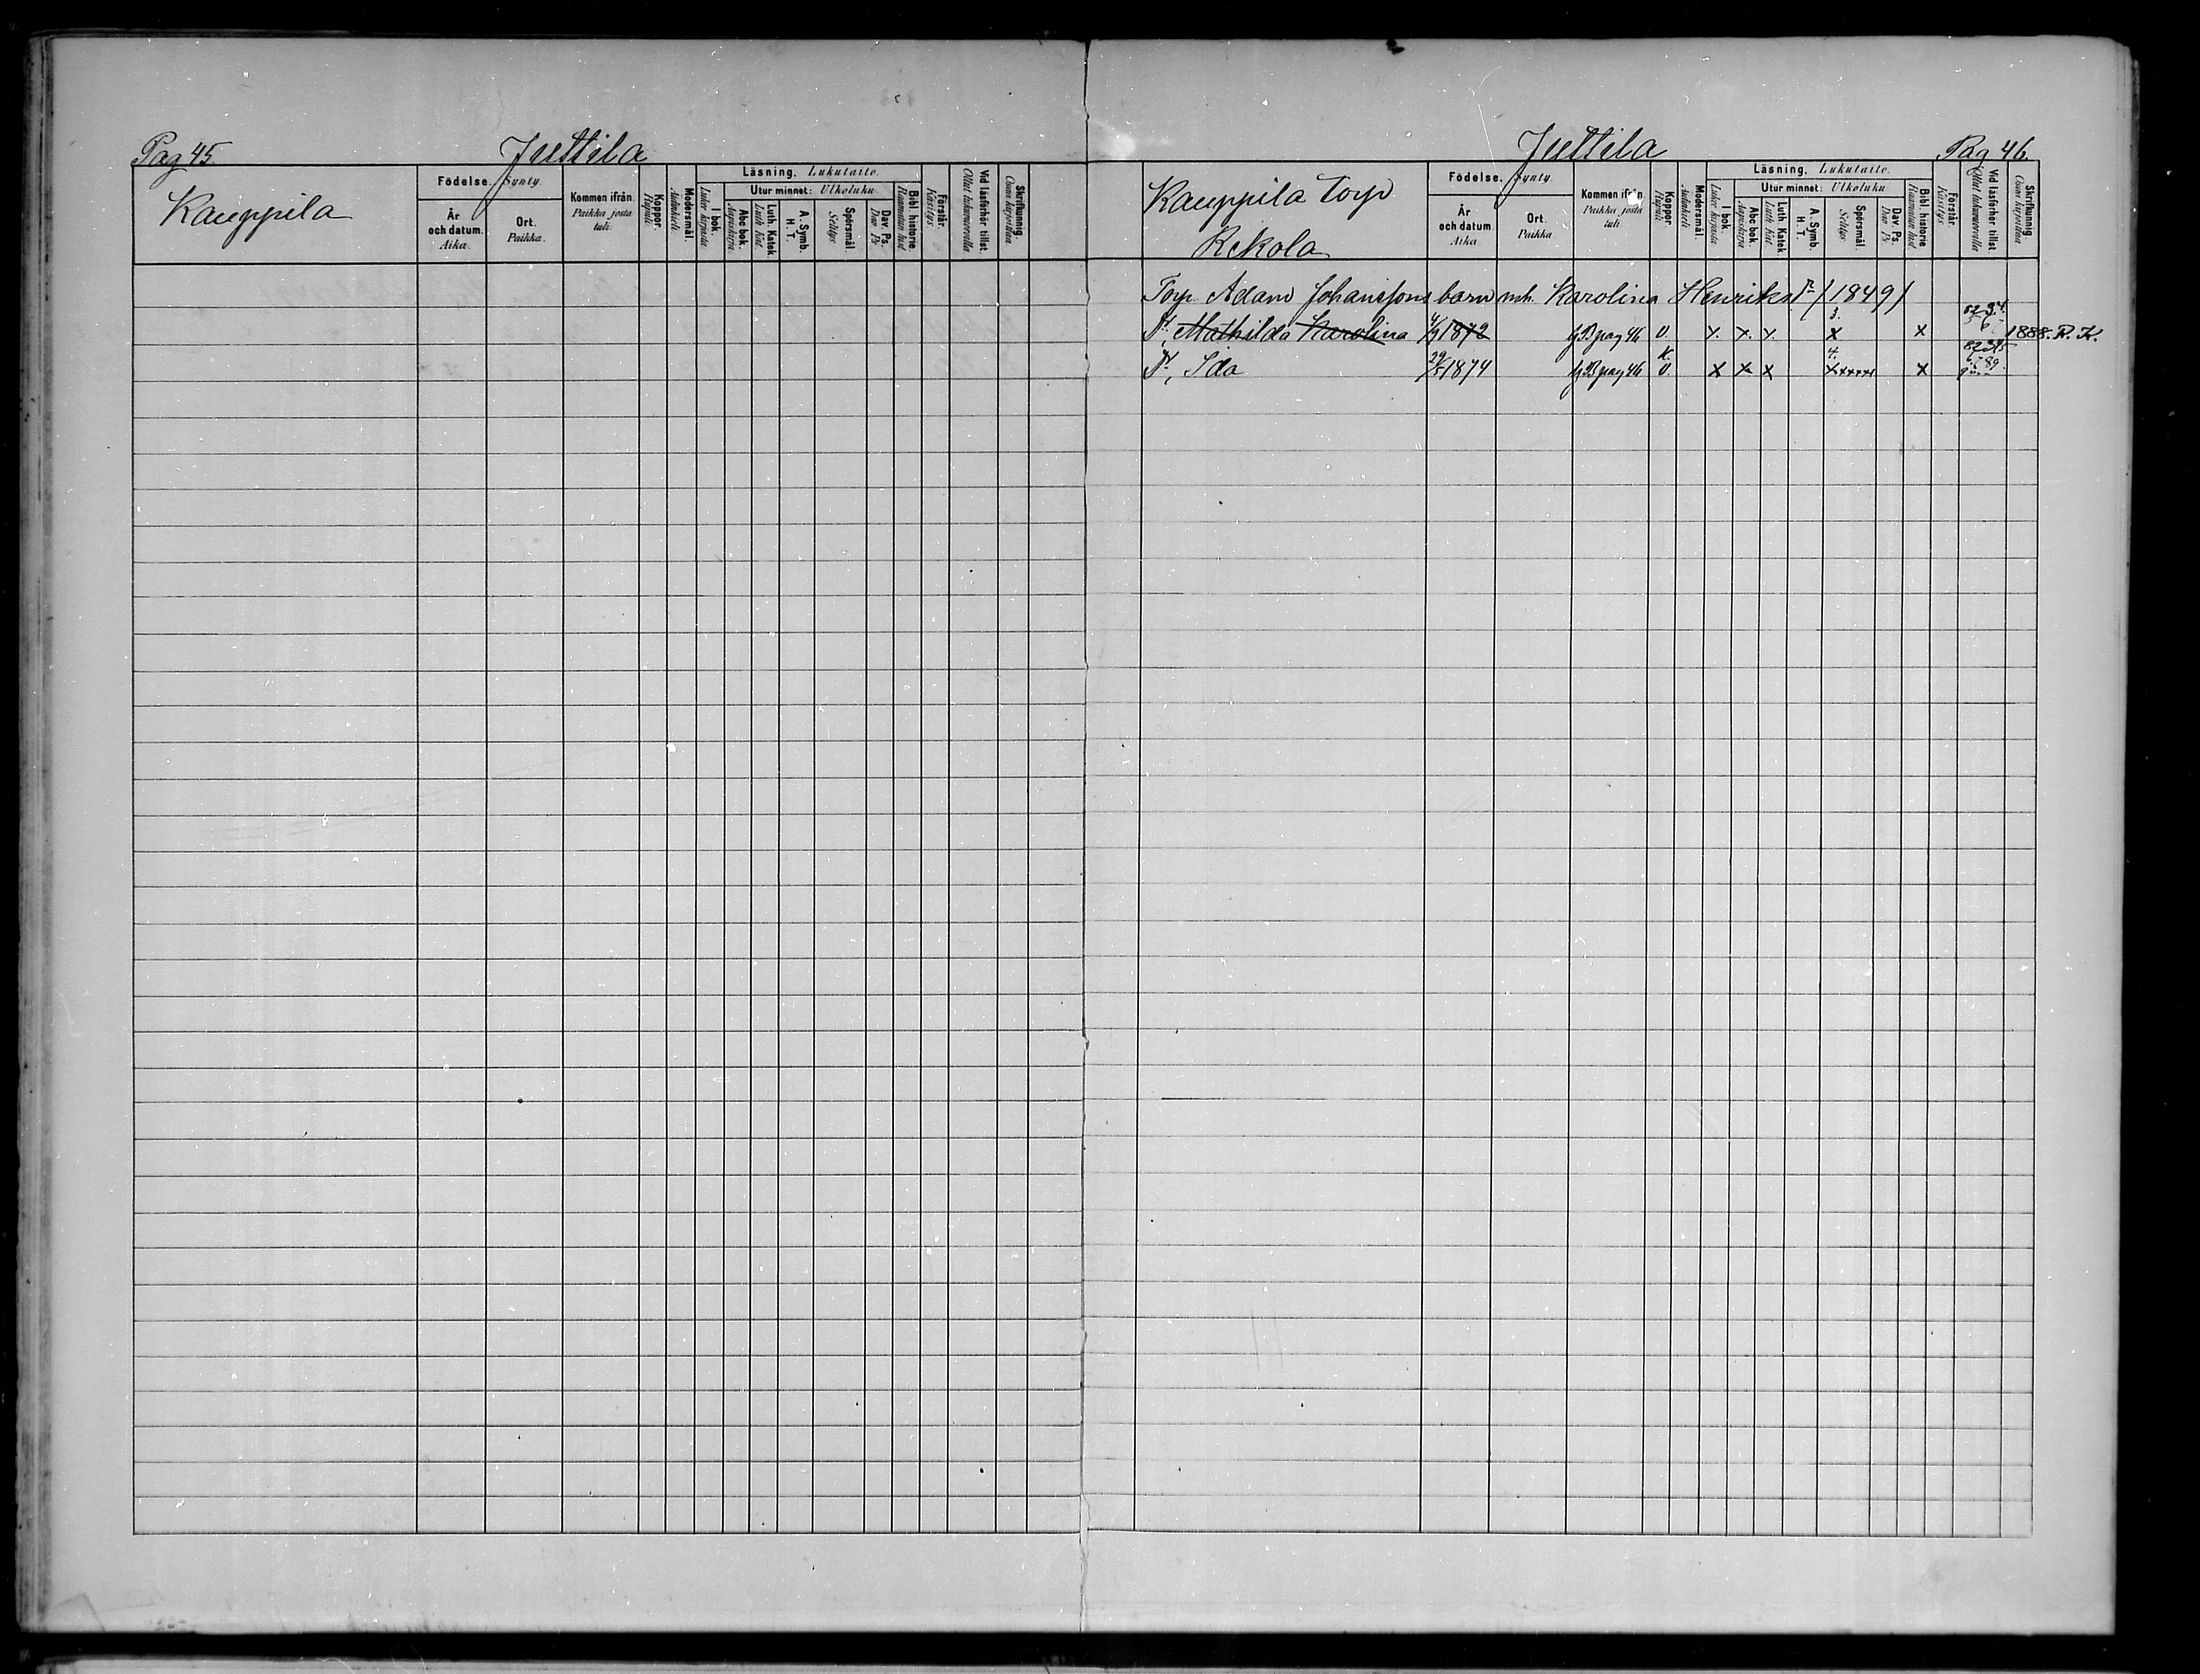 Pag 45.
Juttila
Kauppila
Födelse. Synty.
År och datum. Aika.
Ort. Paikka.
Kommen ifrån. Paikka josta tuli.
Koppor. Rupuli
Modersmål. Äidinkieli
Läsning, Lukutaito.
I bok. Lukee kirjasta
Utur minnet: Ulkoluku
Abc bok. Aapiskirja.
Luth. Katek. Luth. Kat.
A. Symb. H. T.
Spörsmål. Selitys.
Dav. Ps. Dav. Ps.
Bibl. historie Raamatun hist.
Förstår. Käsitys.
Vid läsförhör tillst. Ollut lukuvuorolla
Skrifkunnig. Osaa kirjoittaa
Juttila
Pag 46.
Kauppila torp
Rekola
Födelse. Synty.
År och datum. Aika
Ort. Paikka.
Kommen ifrån. Paikka josta tuli.
Koppor. Rupuli
Modersmål. Äidinkieli
Läsning, Lukutaito.
I bok. Lukee kirjasta
Utur minnet: Ulkoluku
Abc bok. Aapiskirja.
Luth. Katek. Luth. Kat.
A. Symb. H. T.
Spörsmål. Selitys.
Dav. Ps. Dav. Ps.
Bibl. historie Raamatun hist.
Förstår. Käsitys.
Vid läsförhör tillst. Ollut lukuvuorolla
Skrifkunnig. Osaa kirjoittaa
Torp. Adam Johanssons barn mh. Karolina Henriksdr (1849)
Dr, Mathilda Karolina 4/9 1872 fr B pag 46 v. x. x. x. 3. x x 1888. R. K.
Dr, Ida 29/5 1874 fr B pag 46 K. v. x x x 4. xxxxxx x